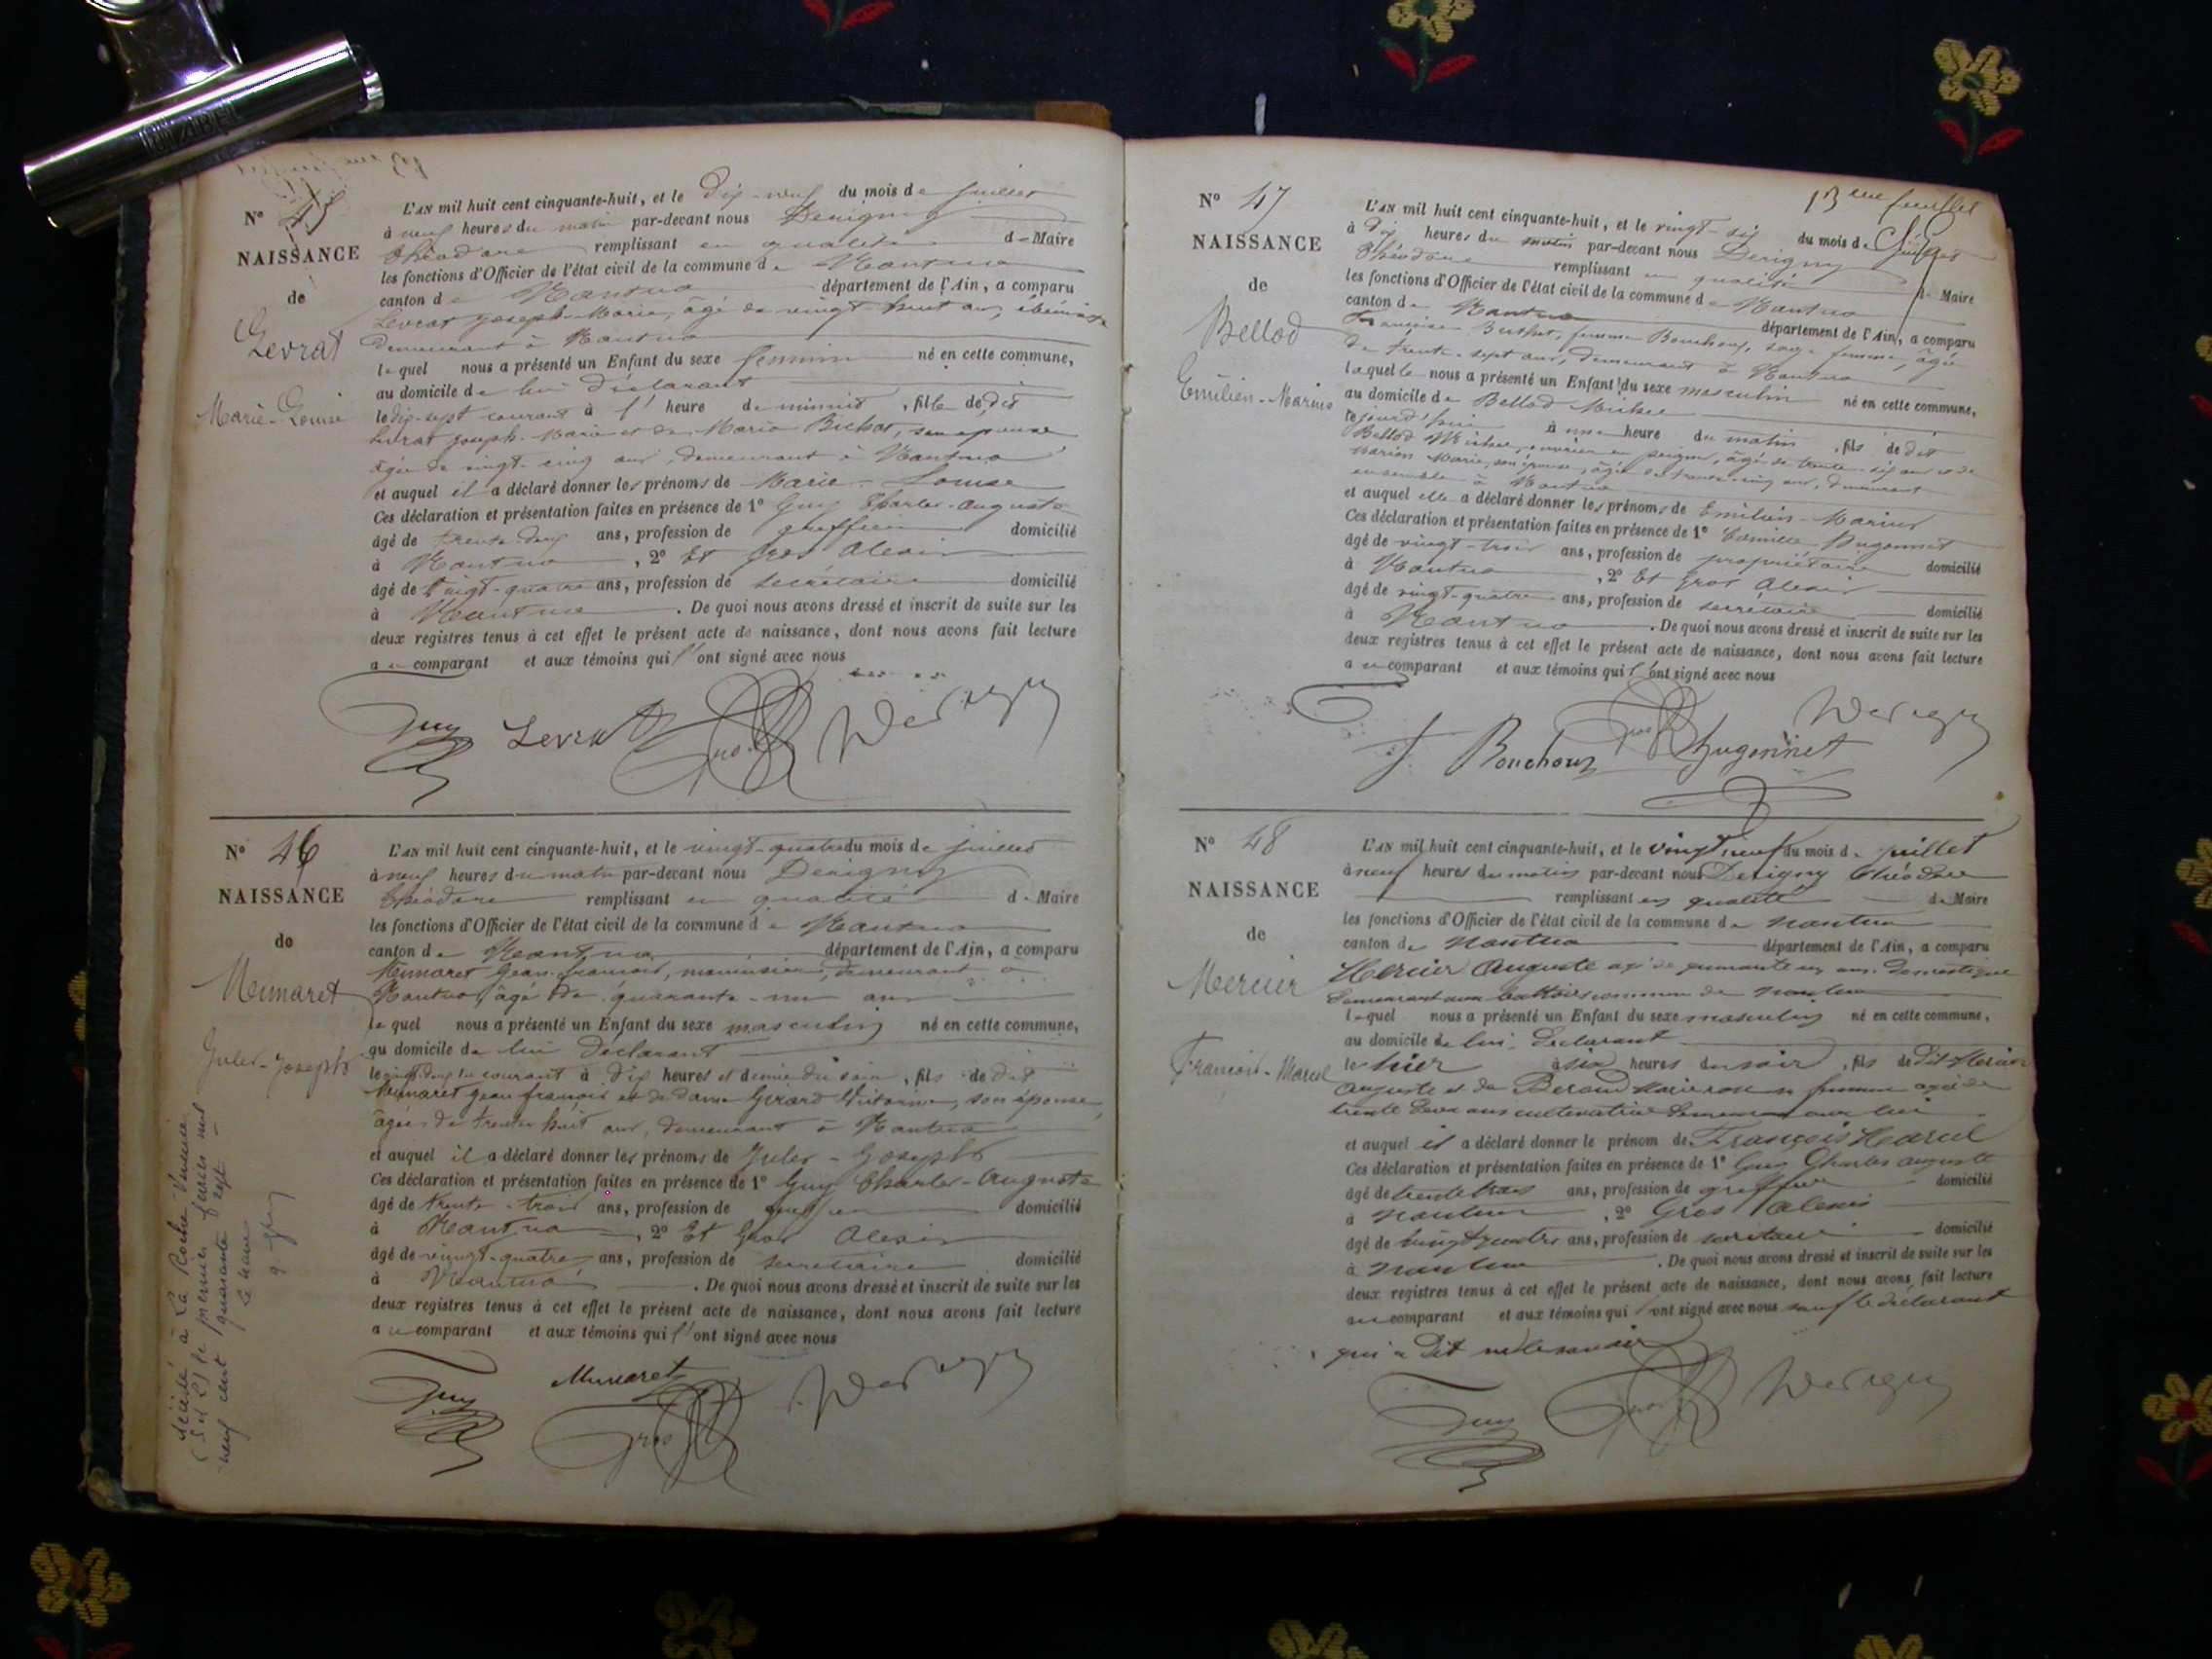 N° 45
NAISSANCE
de
Levrat
Marie-Louise
L'AN mil huit cent cinquante-huit, et le dix-neuf du mois de juillet
à neuf heures du matin par-devant nous Derigny
Théodore remplissant en qualité de Maire
les fonctions d'Officier de l'état civil de la commune de Nantua
canton de Nantua département de l'Ain, a comparu
Levrat Joseph-Marie, âgé de vingt huit ans, ébéniste
demeurant à Nantua
lequel nous a présenté un Enfant du sexe féminin né en cette commune,
au domicile de lui déclarant
le dix-sept courant à l' heure de minuit, fille de dit
Levrat Joseph-Marie et de Marie Bichat, son épouse
âgée de vingt-cinq ans, demeurant à Nantua
et auquel il a déclaré donner les prénoms de Marie-Louise
Ces déclaration et présentation faites en présence de 1° Guy Charles-Auguste
âgé de trente deux ans, profession de greffier domicilié
à Nantua, 2° Et Gros Alexis
âgé de vingt-quatre ans, profession de secrétaire domicilié
à Nantua. De quoi nous avons dressé et inscrit de suite sur les
deux registres tenus à cet effet le présent acte de naissance, dont nous avons fait lecture
au comparant et aux témoins qui l'ont signé avec nous
Guy Levrat Gros Derigny
N° 46
NAISSANCE
de
Munaret
Jules-Joseph
Décédé à La Roche Vineuse
(S et L) le premier février mil
neuf cent quarante sept
Le maire
L'AN mil huit cent cinquante-huit, et le vingt-quatre du mois de juillet
à neuf heures du matin par-devant nous Derigny
Théodore remplissant en qualité de Maire
les fonctions d'Officier de l'état civil de la commune de Nantua
canton de Nantua département de l'Ain, a comparu
Munaret Jean-françois, menuisier, demeurant à
Nantua, âgé de quarante-un ans
lequel nous a présenté un Enfant du sexe masculin né en cette commune,
au domicile de lui déclarant
le vingt-deux du courant à dix heures et demie du soir, fils de dit
Munaret Jean françois et de dame Girard Victorine, son épouse,
âgée de trente huit ans, demeurant à Nantua
et auquel il a déclaré donner les prénoms de Jules-Joseph
Ces déclaration et présentation faites en présence de 1° Guy Charles-Auguste
âgé de trente-trois ans, profession de greffier domicilié
à Nantua, 2° Et Gros Alexis
âgé de vingt-quatre ans, profession de secrétaire domicilié
à Nantua. De quoi nous avons dressé et inscrit de suite sur les
deux registres tenus à cet effet le présent acte de naissance, dont nous avons fait lecture
au comparant et aux témoins qui l'ont signé avec nous
Guy Munaret Gros Derigny
13ème feuillet
N° 47
NAISSANCE
de
Bellod
Emilien-Marius
L'AN mil huit cent cinquante-huit, et le vingt-six du mois de Juillet
à dix heures du matin par-devant nous Derigny
Théodore remplissant en qualité de Maire
les fonctions d'Officier de l'état civil de la commune de Nantua
canton de Nantua département de l'Ain, a comparu
Françoise Berthet, femme Bouchoux, sage femme, âgée
de trente-sept ans, demeurant à Nantua
laquelle nous a présenté un Enfant du sexe masculin né en cette commune,
au domicile de Bellod Michel
le jourd'hui à une heure du matin, fils de dit
Bellod Michel, ouvrier en peignes, âgé de trente-six ans et de
Marion Marie, son épouse, âgée de trente-cinq ans, demeurant
ensemble à Nantua
et auquel elle a déclaré donner les prénoms de Emilien-Marius
Ces déclaration et présentation faites en présence de 1° Camille Hugonnet
âgé de vingt-trois ans, profession de propriétaire domicilié
à Nantua, 2° Et Gros Alexis
âgé de vingt-quatre ans, profession de secrétaire domicilié
à Nantua. De quoi nous avons dressé et inscrit de suite sur les
deux registres tenus à cet effet le présent acte de naissance, dont nous avons fait lecture
au comparant et aux témoins qui l'ont signé avec nous
Gros Derigny
f. Bouchoux Hugonnet
N° 48
NAISSANCE
de
Mercier
François-Marcel
L'AN mil huit cent cinquante-huit, et le vingt neuf du mois de juillet
à neuf heures du matin par-devant nous Derigny Théodore
remplissant en qualité de Maire
les fonctions d'Officier de l'état civil de la commune de Nantua
canton de Nantua département de l'Ain, a comparu
Mercier Auguste agé de quarante un ans domestique
demeurant aux battoirs commune de Nantua
lequel nous a présenté un Enfant du sexe masculin né en cette commune,
au domicile de lui déclarant
le hier à six heures du soir, fils de dit Mercier
Auguste et de Beraud Marie sa femme agée de
trente deux ans cultivatrice demeurant avec lui
et auquel il a déclaré donner le prénom de François Marcel
Ces déclaration et présentation faites en présence de 1° Guy Charles Auguste
âgé de trente trois ans, profession de greffier domicilié
à Nantua, 2° Gros Alexis
âgé de vingt quatre ans, profession de secrétaire domicilié
à Nantua. De quoi nous avons dressé et inscrit de suite sur les
deux registres tenus à cet effet le présent acte de naissance, dont nous avons fait lecture
au comparant et aux témoins qui l'ont signé avec nous sauf le déclarant
qui a dit ne le savoir
Guy Gros Derigny